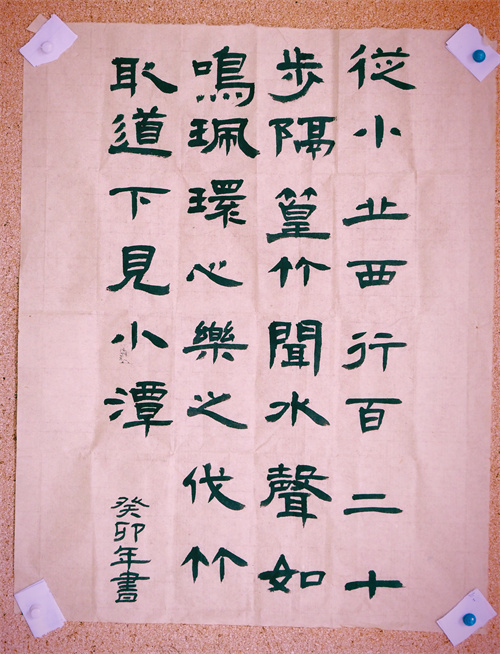 從小丘西行百二十
步隔篁竹聞水聲如
鳴珮環心樂之伐竹
取道下見小潭
癸卯年書